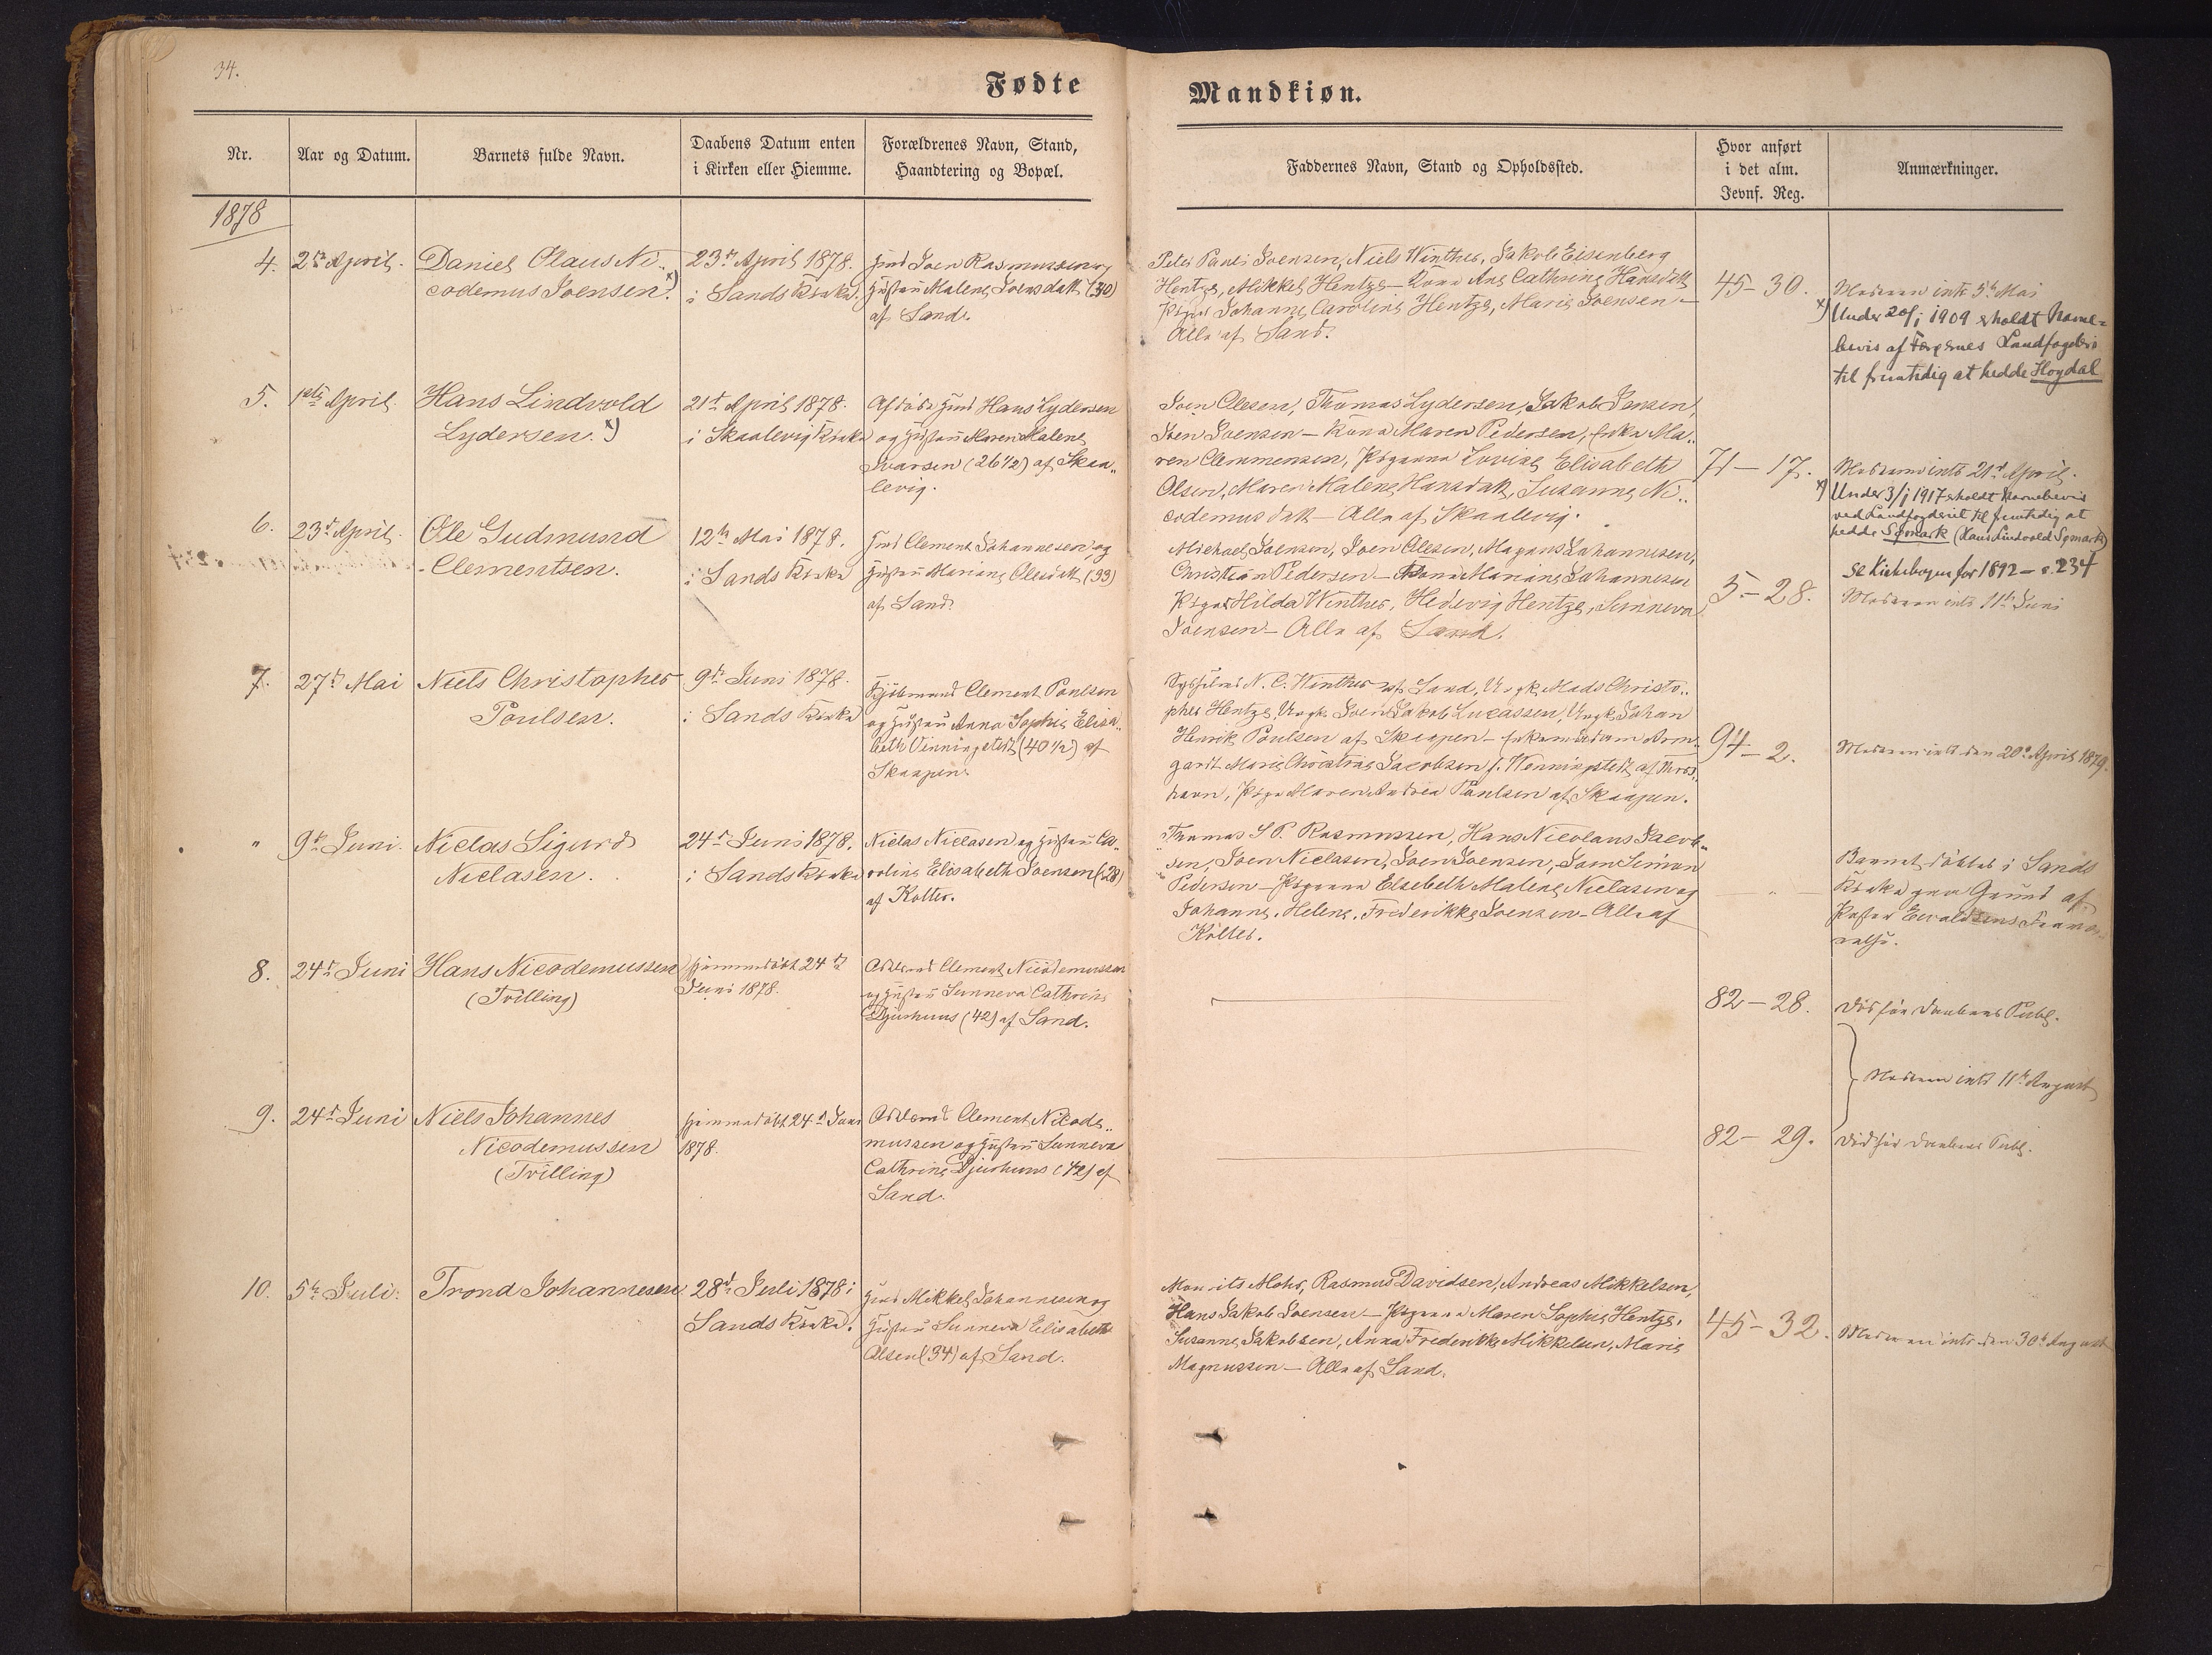 34.
Fødte
Mandkiøn.
Nr.
Aar og Datum.
Barnets fulde Navn.
Daabens Datum enten
i Kirken eller Hiemme.
Forældrenes Navn, Stand,
Haandtering og Bopæl.
Faddernes Navn, Stand og Opholdssted.
Hvor anført
i det alm.
Jevnf. Reg.
Anmærkninger.
1878
4.
2den April.
Daniel Olaus Ni-
codemus Joensen. x)
23de April 1878.
i Sands Kirke.
Gmd Joen Rasmussen og
Hustru Malene Joensdatt (30)
af Sand.
Peter Poul Joensen, Niels Winther, Jakob Eisenberg
Hentze, Mikkel Hentze – Kone Ane Cathrine Hansdatt
Piger Johanne Caroline Hentze, Marie Joensen –
Alle af Sand.
45-30.
Moderen intr. 5te Mai
x) Under 20/1 1909 erholdt Navne-
bevis af Færøernes Landfogderi
til fremtidig at hedde Hoydal
5.
1ste April.
Hans Lindvold
Lydersen. x)
21de April 1878.
i Skaalevig Kirke
Afdøde Gmd Hans Lydersen
og Hustru Maren Malene
Ivarsen (26 1/2) af Skaa-
levig.
Joen Olesen, Thomas Lydersen, Jakob Jensen,
Joen Joensen – Kone Maren Pedersen, Enke Ma-
ren Clemmensen, Pigerne Lovise Elisabeth
Olsen, Maren Malene Hansdatt, Susanne Ni-
codemusdatt – Alle af Skaalevig.
71-17.
Moderen intr. 21de April.
x) Under 3/1 1917 erholdt Navnebevis
ved Landfogderiet til fremtidig at
hedde Sømark (Hans Lindvold Sømark)
se Kirkebogen for 1892 – s. 234
6.
23de April.
Ole Gudmund
Clementsen.
12te Mai 1878.
i Sands Kirke
Gmd Clement Johannesen og
Hustru Mariane Olesdatt (33)
af Sand.
Michael Joensen, Joen Olesen, Magnus Johannesen,
Christian Pedersen – Kone Mariane Johannesen
Piger Hilda Winther, Hedevig Hentze, Sunneva
Joensen – Alle af Sand.
5-28.
Moderen intr. 11te Juni
7.
27de Mai
Niels Christopher
Poulsen.
9de Juni 1878.
i Sands Kirke
Clement Poulsen
og Hustru Anna Sophie Elisa-
beth Venningstedt (40 1/2) af
Skaapen.
Sysselmd N. C. Winther af Sand, Ungk. Mads Christo-
pher Hentze, Ungk. Joen Jakob Lucassen, Ungk. Johan
Henrik Poulsen af Skaapen – Enkemadam Arm-
gardt Marie Christine Jacobsen f. Wenningstedt af Thors-
havn, Pige Maren Andrea Poulsen af Skaapen.
94-2.
Moderen intr. den 20de April 1879.
"
9de Juni.
Niclas Sigurd
Niclasen.
24de Juni 1878.
i Sands Kirke
Niclas Niclasen og Hustru Ca-
roline Elisabeth Joensen (28)
af Kolter.
Thomas S. P. Rasmussen, Hans Nicolaus Jacob-
sen, Joen Niclasen, Joen Joensen, Joen Simon
Pedersen – Pigerne Elsebeth Malene Niclasen og
Johanne Helene Frederikke Joensen – Alle af
Kolter.
– " –
Barnet døbtes i Sands
Kirke paa Grund af
Pastor Evaldsens Fravæ-
relse.
8.
24de Juni
Hans Nicodemussen
(Tvilling)
Hjemmedøbt 24de
Juni 1878.
Clement Nicodemussen
og Hustru Sunneva Cathrine
Djurhuus (42) af Sand.
82-28.
Død før Daabens Publ.
Moderen intr. 11te August
9.
24de Juni
Niels Johannes
Nicodemussen
(Tvilling)
Hjemmedøbt 24de Juni
1878.
Clement Nicode-
mussen og Hustru Sunneva
Cathrine Djurhuus (42) af
Sand.
82-29.
Død før Daabens Publ.
10.
5te Juli.
Trond Johannesen
28de Juli 1878 i
Sands Kirke.
Gmd Mikkel Johannesen og
Hustru Sunneva Elisabeth
Olsen (34) af Sand.
Mourits Mohr, Rasmus Davidsen, Andreas Mikkelsen,
Hans Jakob Joensen – Pigerne Maren Sophie Hentze,
Susanne Jakobsen, Anna Frederikke Mikkelsen, Marie
Magnussen – Alle af Sand.
45-32.
Moderen intr. den 30te August